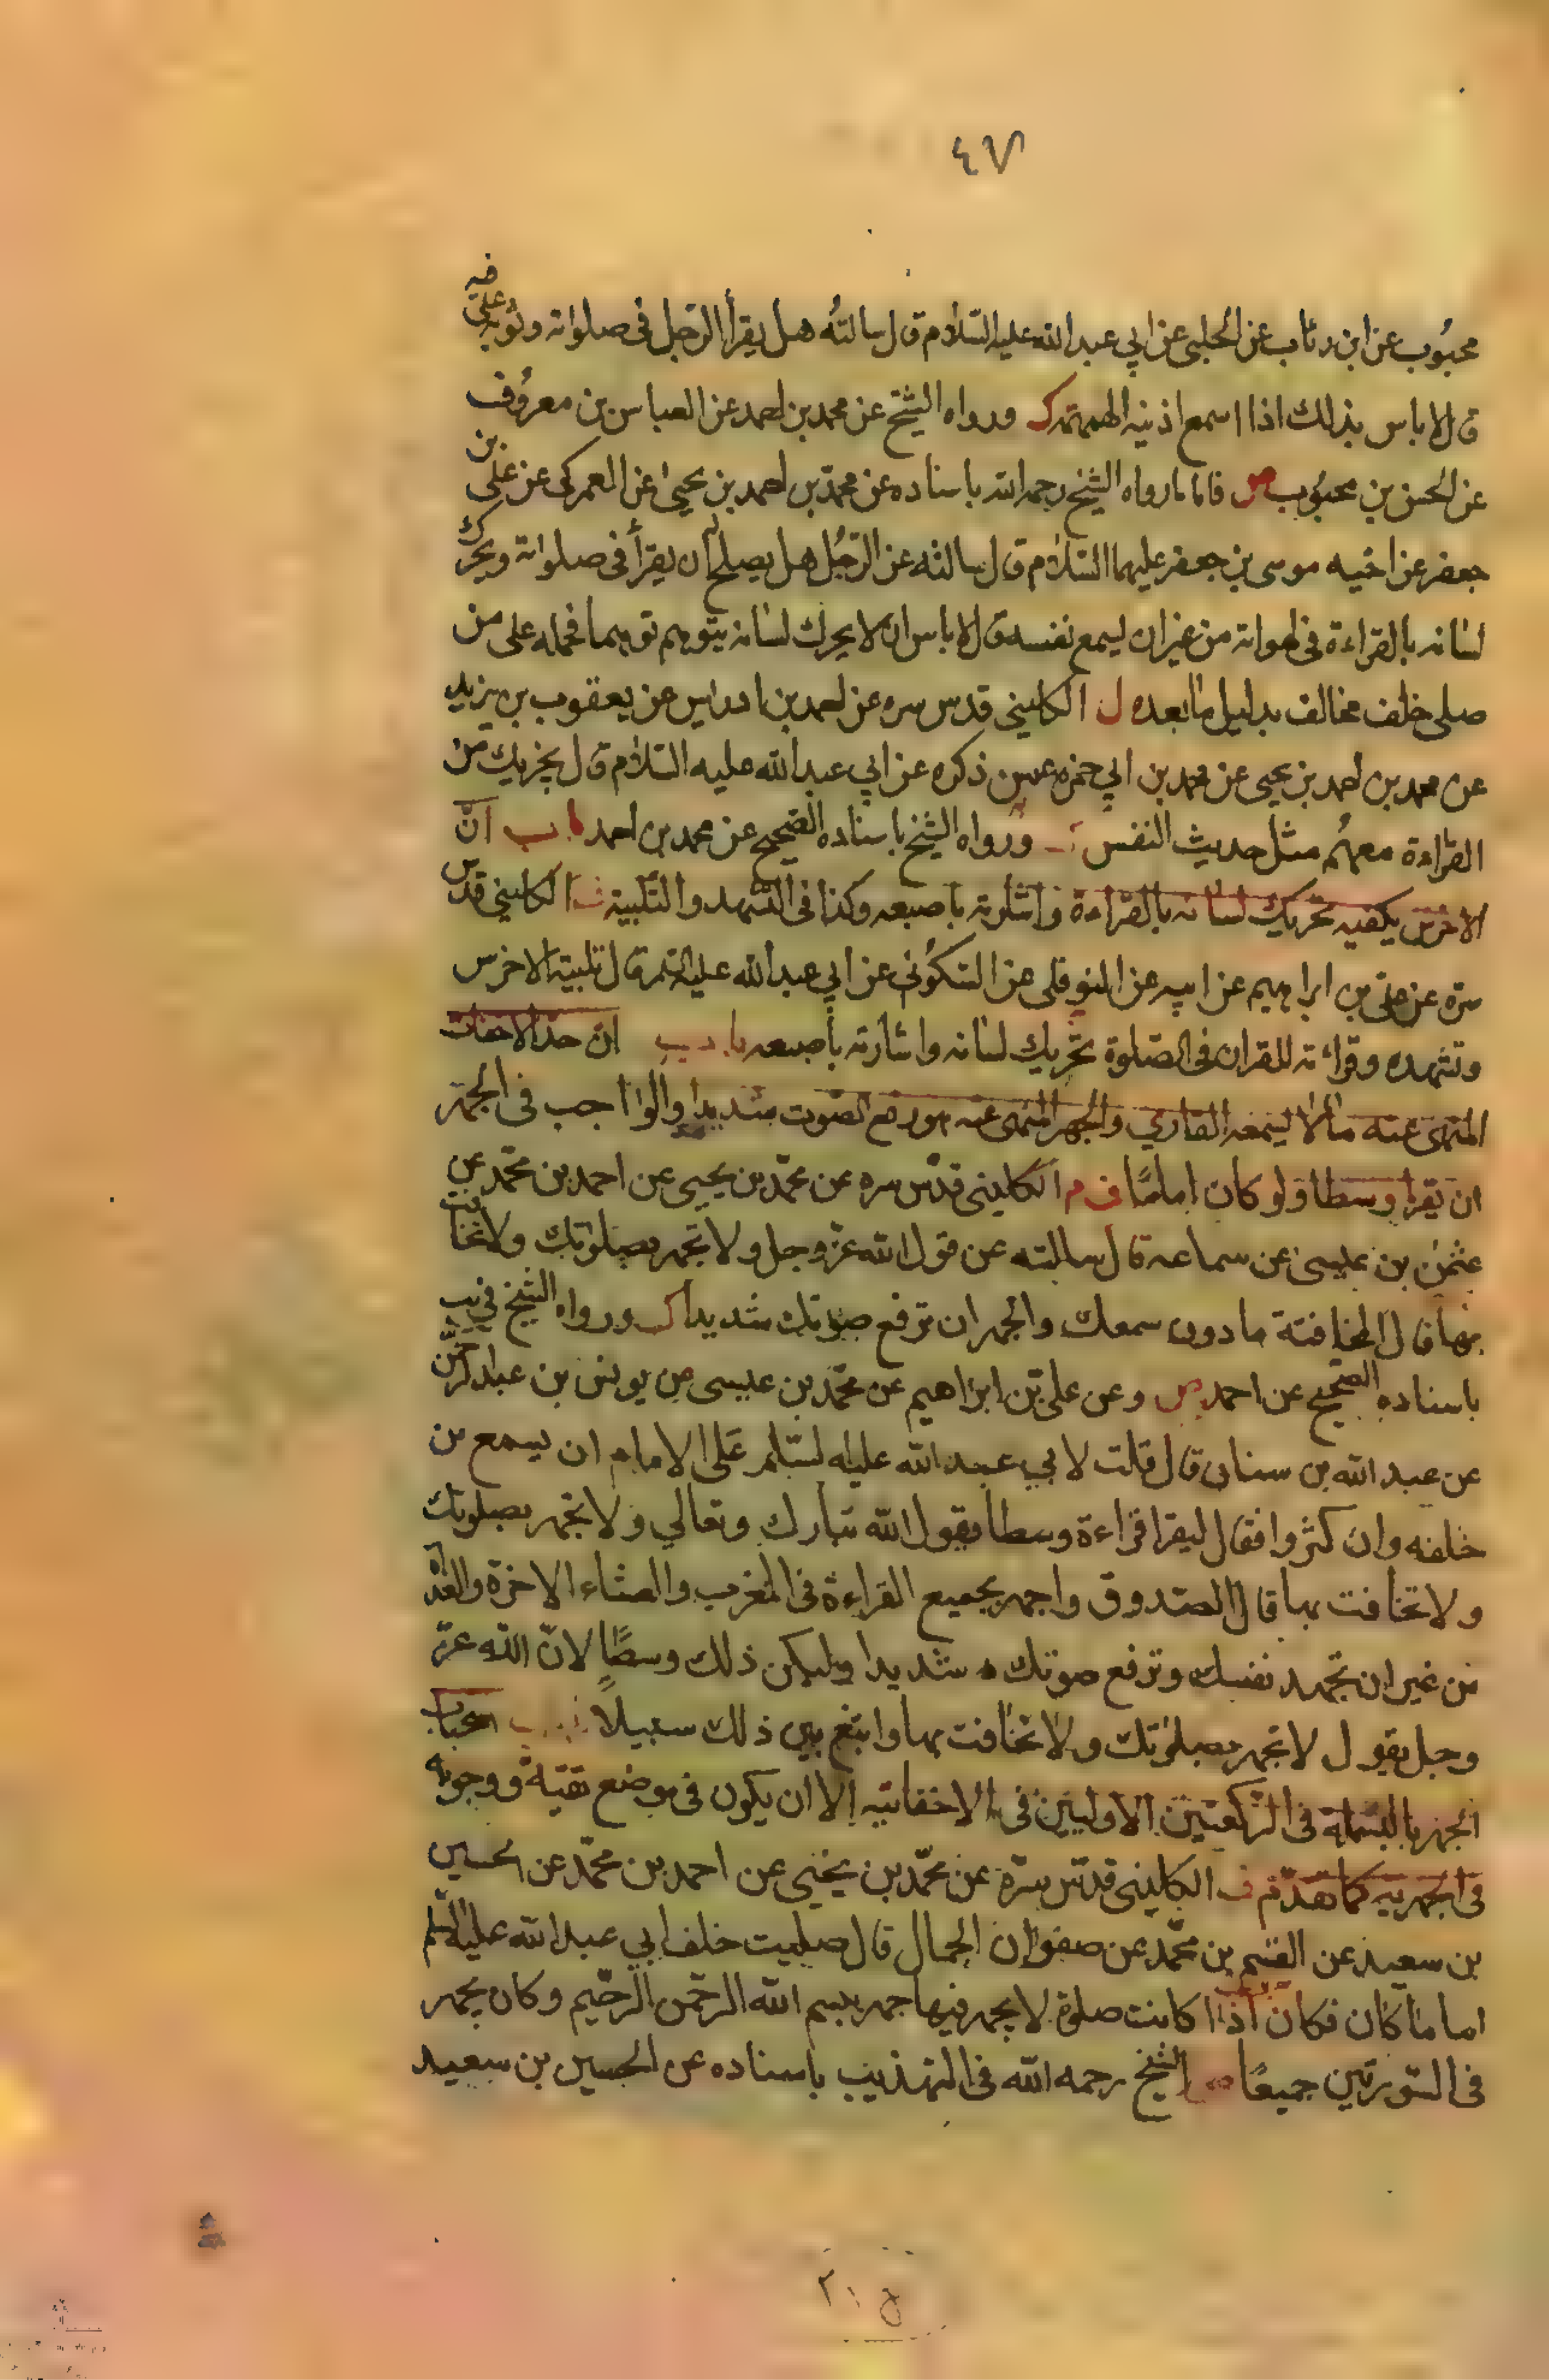 ٤٧
محبُوب عن ابن رئاب عن الحلبي عن ابي عبد الله عليه السّلام قال سالتُه هل يقرأ الرّجل فى صلواته وثوبه على فيه
قال لا باس بذلك اذا اسمع اذنيه الهمهمة كـ ورواه الشيخ عن محمد بن احمد عن العباس بن معرُوف
عن الحسن بن محبُوب ص فاما ما رواه الشيخ رحمه الله باسناده عن محمّد بن احمد بن يحيى عن العمركى عن على بن
جعفر عن اخيه موسى بن جعفر عليهما السّلام قال سالته عن الرّجُل هل يصلح له ان يقرأ فى صلواته ويحرك
لسانه بالقراءة فى لهواته من غير ان يسمع نفسه قال لا باس ان لا يحرك لسانه يتوهم توهما فحمله على من
صلى خلف مخالف بدليل ما بعده ل الكلينى قدس سره عن احمد بن ادريس عن يعقوب بن يزيد
عن محمد بن احمد بن يحيى عن محمد بن ابي حمزه عمن ذكره عن ابي عبد الله عليه السّلام قال يجزيك من
القراءة معهُم مثل حديث النفس ورواه الشيخ باسناده الصّحيح عن محمد بن احمد باب انّ
الاخرس يكفيه تحريك لسانه بالقراءة واشارته باصبعه وكذا فى التشهد والتّلبية ف الكلينى قدس
سرّه عن علىّ بن ابراهيم عن ابيه عن النوفلى عن السّكُونى عن ابي عبد الله عليه السّلم قال تلبية الاخرس
وتشهده وقرائته للقران فى الصّلوة تحريك لسانه واشارته باصبعه باب انّ حدّ الاخفات
المنهى عنه ما لا يسمعه القاري والجهر المنهى عنه هو رفع الصّوت شديدا والواجب فى الجهر
ان يقرا وسطا ولو كان امامًا ف م الكلينى قدّس سره عن محمّد بن يحيى عن احمد بن محمّد عن
عثمن بن عيسى عن سماعه قال سالته عن قول الله عزّ وجل ولا تجهر بصلوتك ولا تخافت
بها قال المخافتة ما دون سمعك والجهر ان ترفع صوتك شديدا كـ ورواه الشيخ فى يب
باسناده الصّحيح عن احمد ص وعن علىّ بن ابراهيم عن محمّد بن عيسى عن يونس بن عبد الرّحمن
عن عبد الله بن سنان قال قلت لابي عبد الله عليه السّلم على الامام ان يسمع من
خلفه وان كثروا فقال ليقرا قراءة وسطا يقول الله تبارك وتعالي ولا تجهر بصلوتك
ولا تخافت بها قال الصّدوق واجهر بجميع القراءة فى المغرب والعشاء الاخرة والغداة
من غير ان تجهد نفسك وترفع صوتك شديدا وليكن ذلك وسطًا لانّ الله عزّ
وجل يقول لا تجهر بصلوتك ولا تخافت بها وابتغ بين ذلك سبيلًا باب استحباب
الجهر بالبسملة فى الرّكعتين الاوليين فى الاخفاتيه الا ان يكون فى موضع تقيّة ووجوبه
فى الجهريه كما تقدّم ف الكلينى قدّس سرّه عن محمّد بن يحيى عن احمد بن محمّد عن الحسين
بن سعيد عن القسم بن محمّد عن صفوان الجمال قال صليت خلف ابي عبد الله عليه السّلم
اماما كان فكان اذا كانت صلوة لا يجهر فيها جهر ببسم الله الرحمن الرّحيم وكان يجهر
فى السّورتين جميعًا ص الشيخ رحمه الله فى التهذيب باسناده عن الحسين بن سعيد